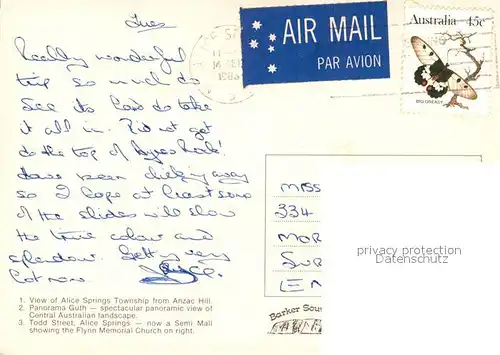 Tues
Really wonderful
trip so much to
see its hard to take
it all in. Did not get
to the top of Ayres Rock!
Have been clicking away
so I hope at least some
of the slides will show
the true colour and
splendour. Getting very
hot now.
1. View of Alice Springs Township from Anzac Hill.
2. Panorama Guth — spectacular panoramic view of
Central Australian landscape.
3. Todd Street, Alice Springs — now a Semi Mall
showing the Flynn Memorial Church on right.
AIR MAIL
PAR AVION
Australia 45c
BIG GREASY
1983
MISS
334
MOR
SU
LE
privacy protection
Datenschutz
Barker Sou